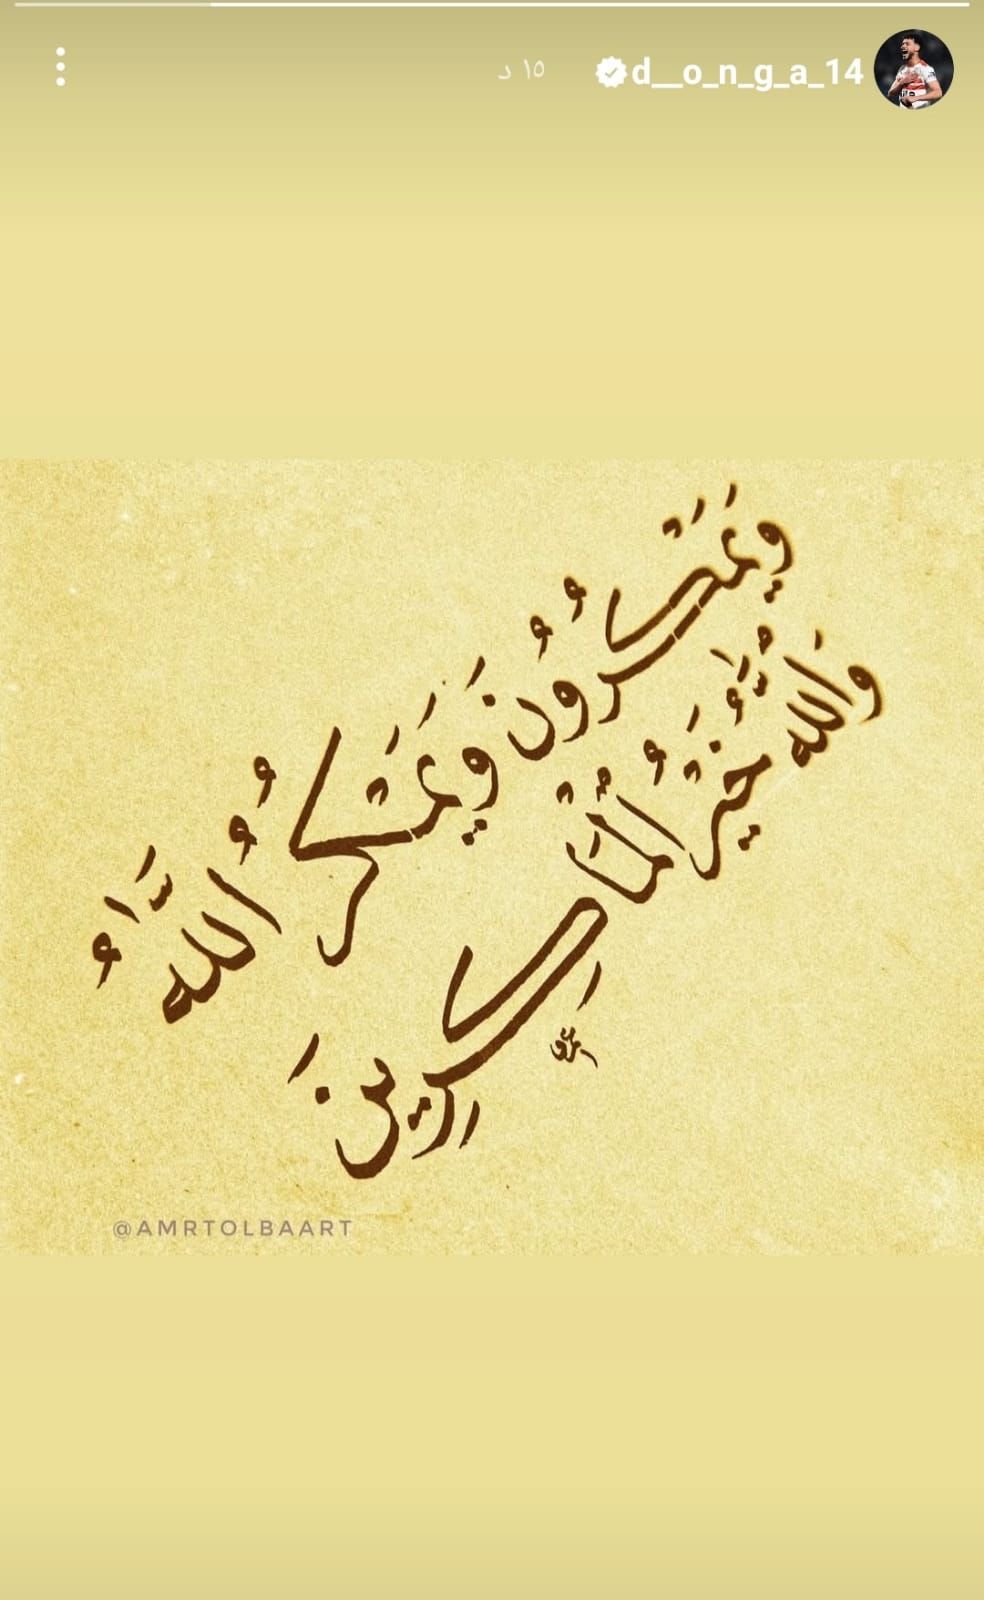 d__o_n_g_a_14 ١٥ د
وَيَمْكُرُونَ وَيَمْكُرُ اللَّهُ
وَاللَّهُ خَيْرُ الْمَاكِرِينَ
@AMRTOLBAART